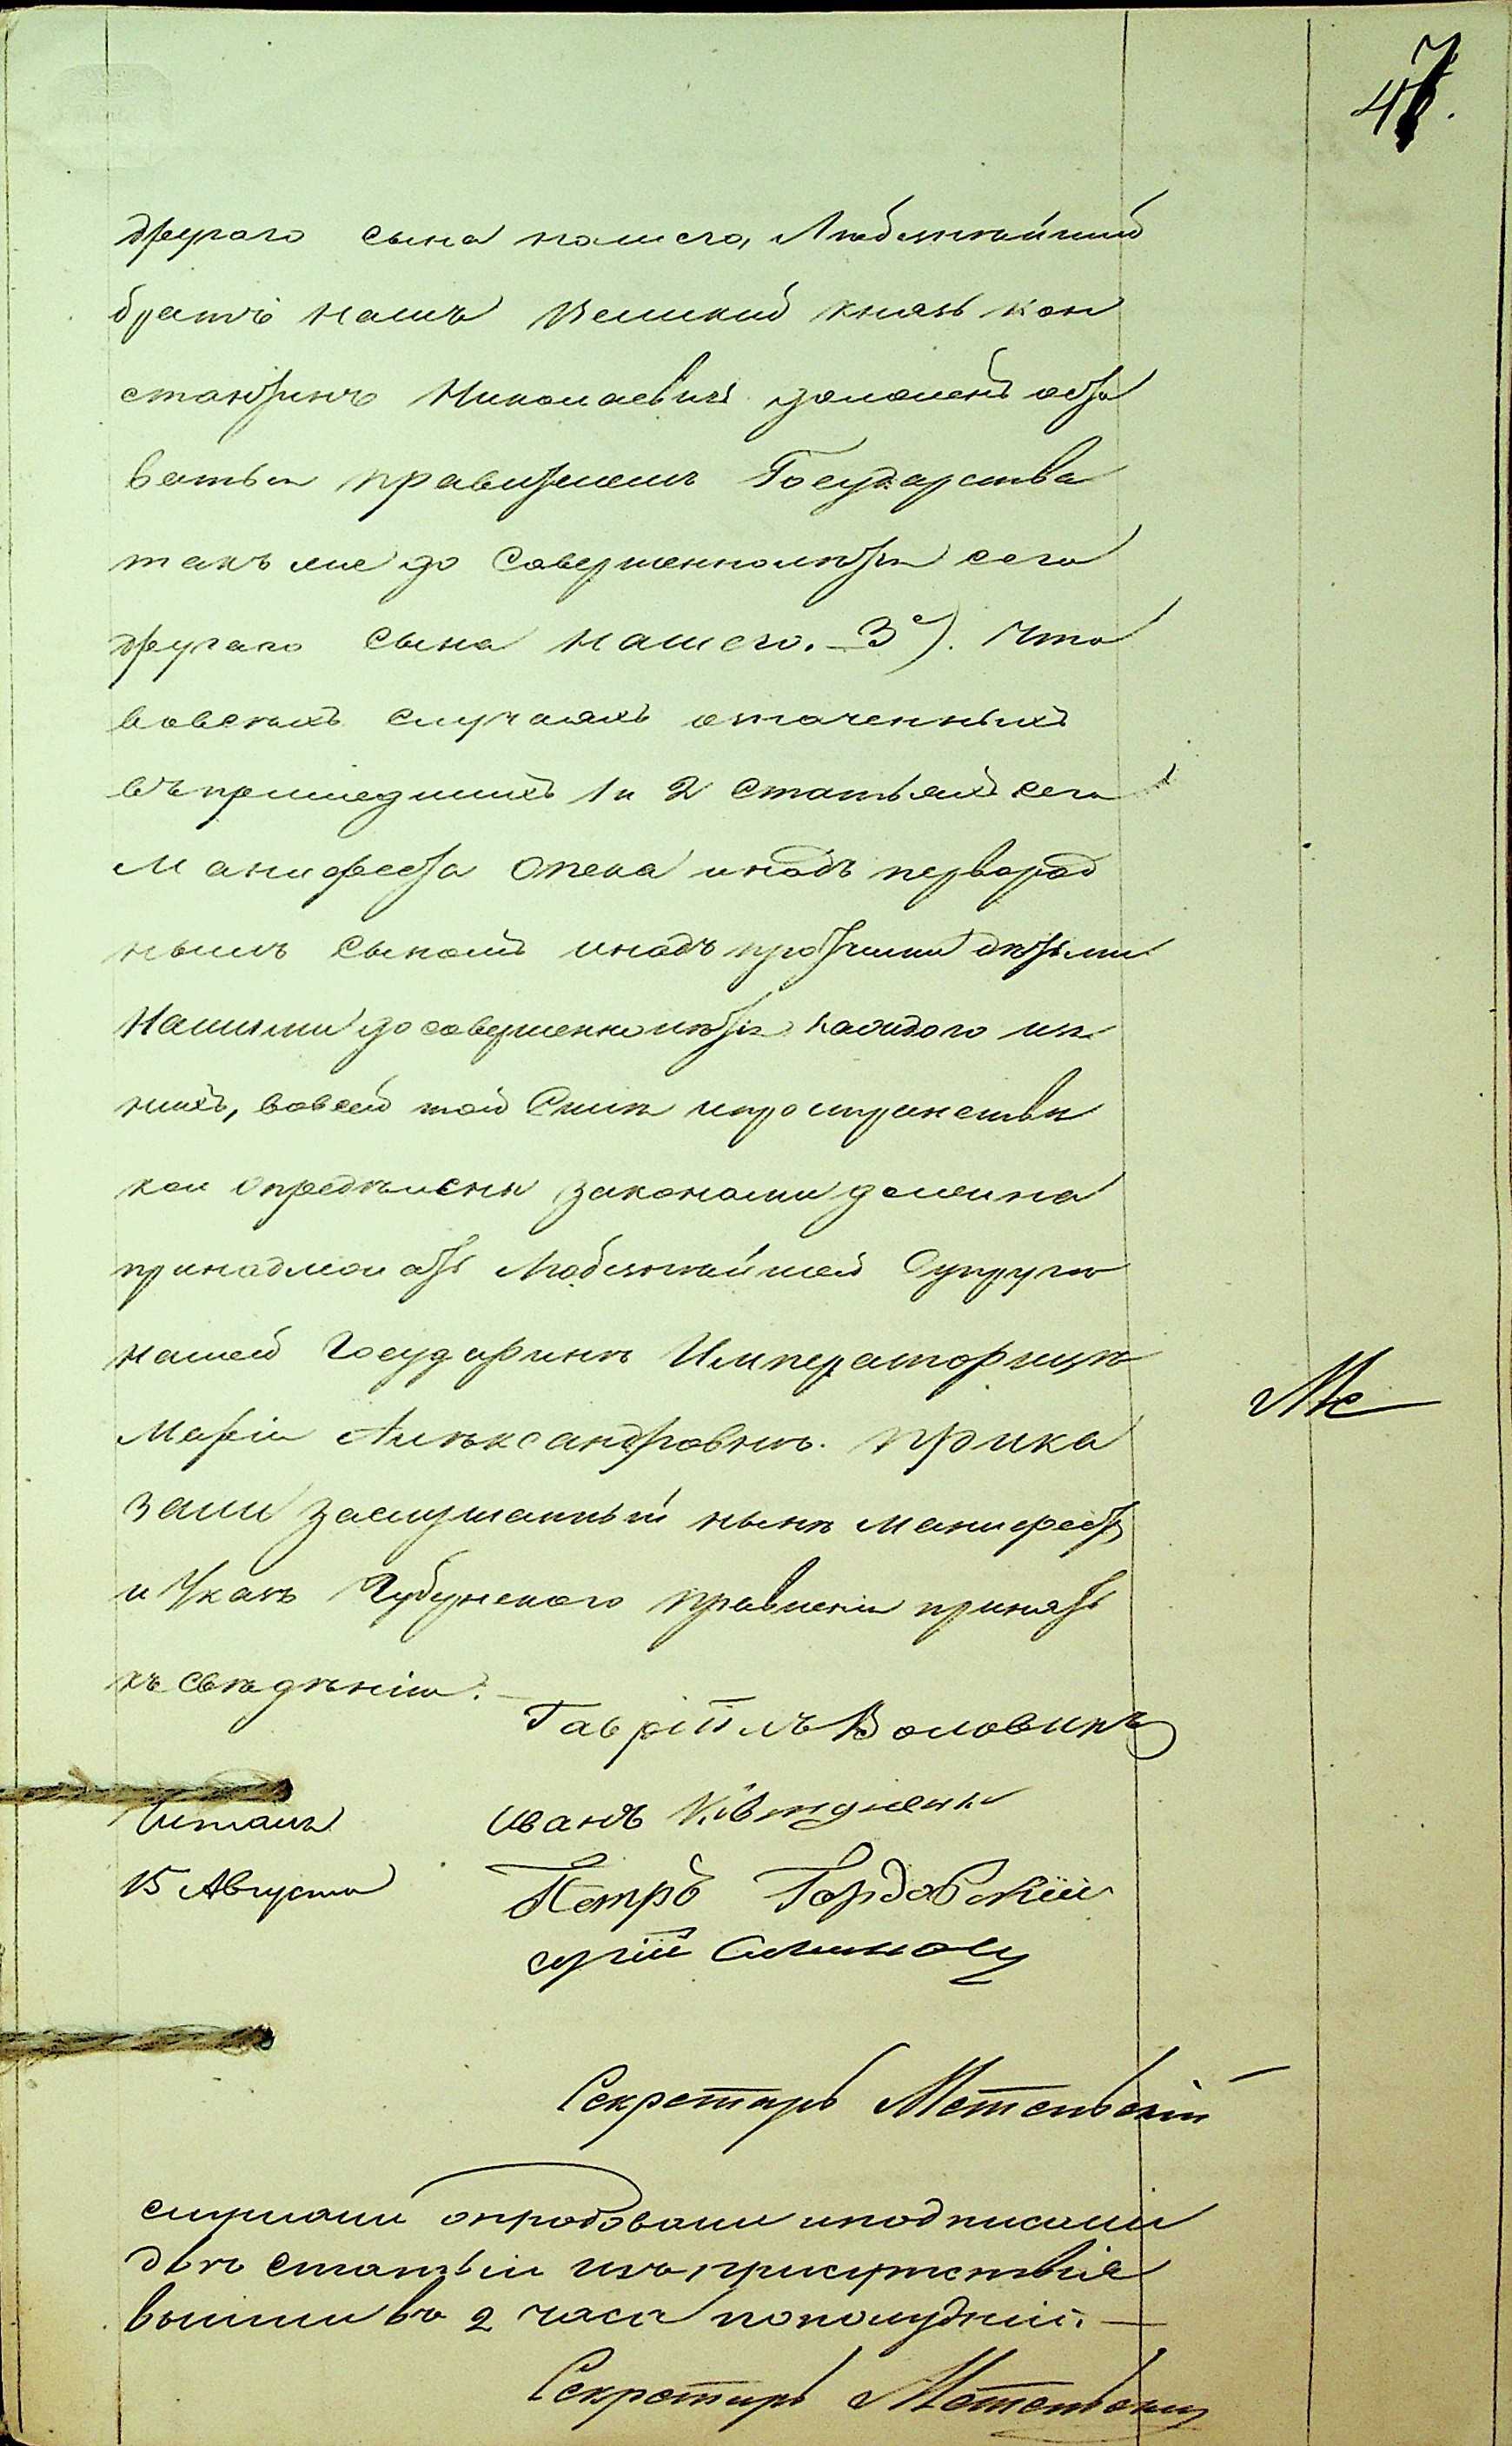 47.
другаго сына нашего, Любезнѣйшій
братъ нашъ Великій князь Кон
стантинъ Николаевичь доложенъ оста
ваться правителемъ Государства
такъ же до Совершеннолѣтія сего
другаго сына Нашего. – 3е). Что
вовсехъ случаяхъ означенныхъ
въ предшедшихъ 1 и 2 Статьяхъ сего
Манифеста Опека инадъ первород
нымъ Сыномъ инадъ протчими дѣтьми
Нашими до совершеннолѣтія каждого из
нихъ, вовсей той Силѣ ипространствѣ
кои Определены законами должна
принадлежать Любезнѣйшей Супругѣ
нашей Государинѣ Императорицѣ
Маріи Алѣксандровнѣ. Прика
зали Заслушанный нынѣ манифест
и Указъ Губернского правленія принять
къ сведѣнію. –
Гавріилъ Воловикъ
Иванъ
Петръ Гордовскій
Секретарь Метельскій
Читалъ
15 Августа
слушали опробовали иподписали
двѣ статьи изъ присутствія
вышли въ 2 часа пополуднии. –
Секретарь Метельскій